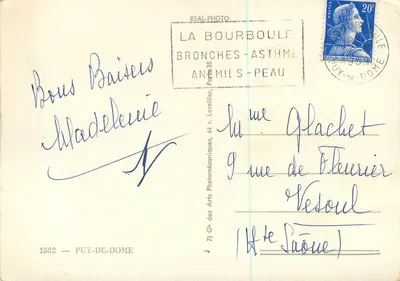 REAL-PHOTO
LA BOURBOULE
BRONCHES - ASTHME
ANÉMIES - PEAU
20F
PUY-DE-DOME
Bons Baisers
Madeleine
Mme Glachet
9 rue de Fleurier
Vesoul
(Hte Saône)
Cie des Arts Photomécaniques, 44 r. Letellier, Paris
1582 — PUY-DE-DOME